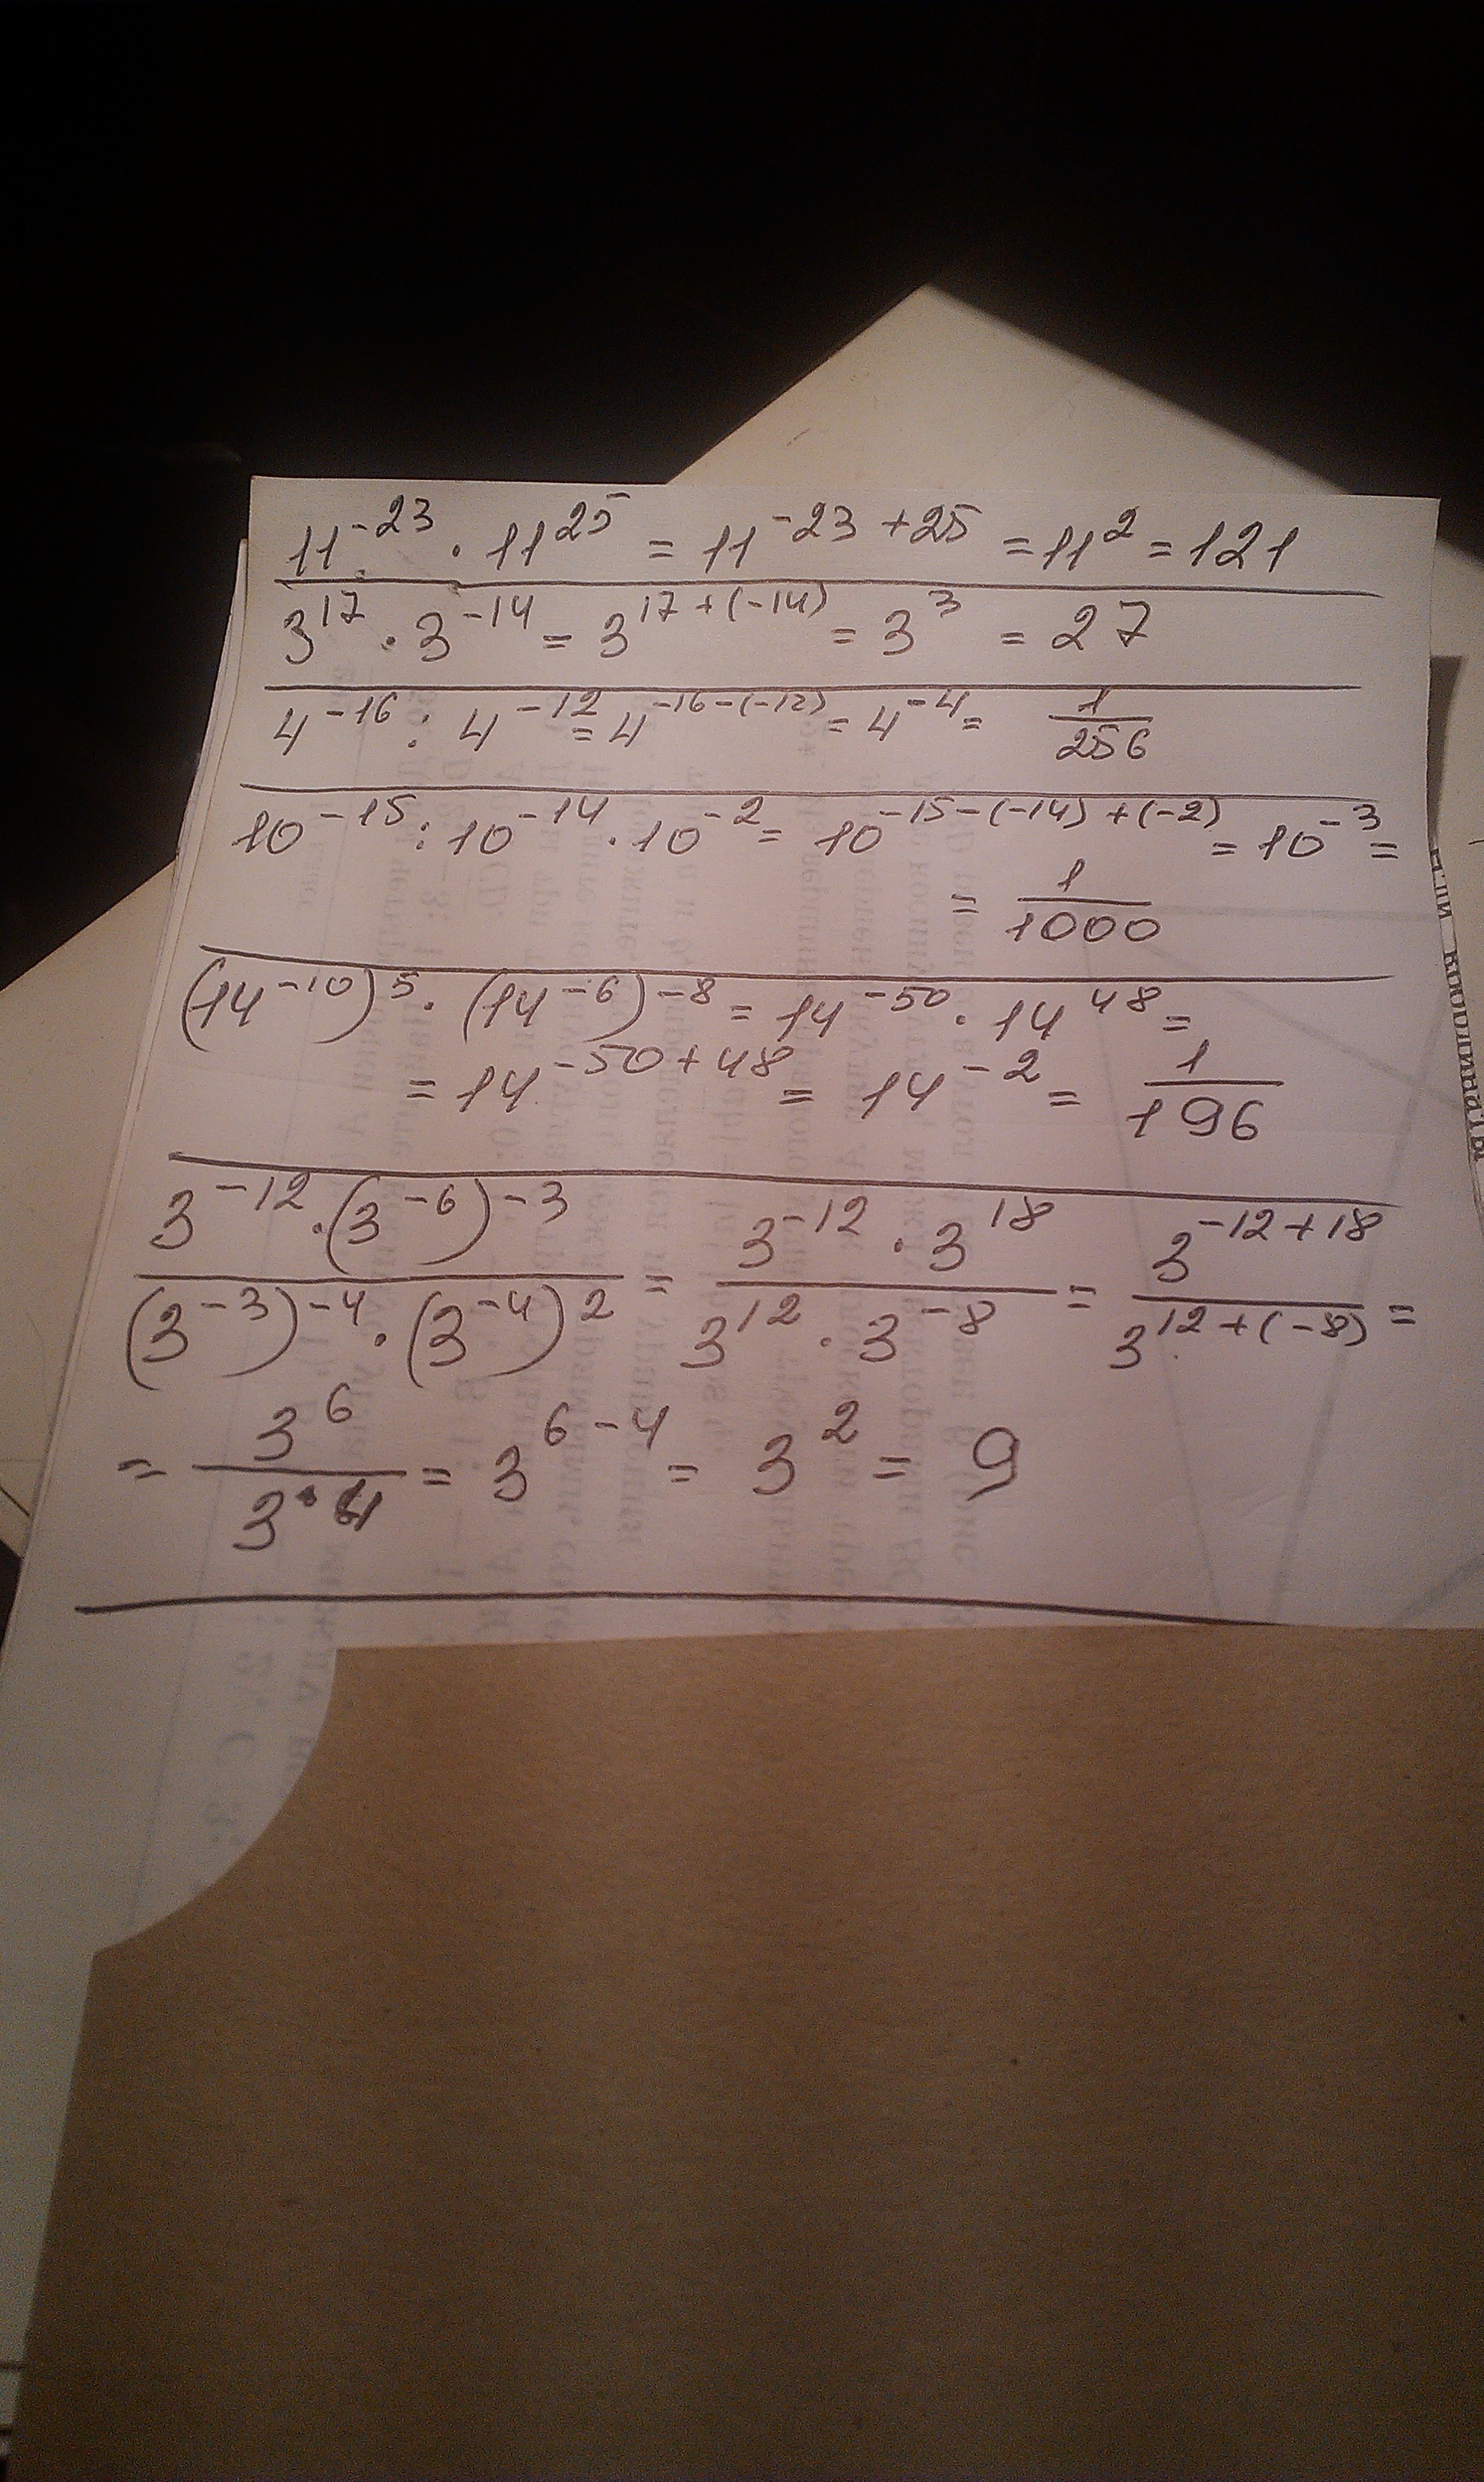 11^-23 · 11^25 = 11^-23+25 = 11^2 = 121
3^17 · 3^-14 = 3^17+(-14) = 3^3 = 27
4^-16 : 4^-12 = 4^-16-(-12) = 4^-4 = 1/256
10^-15 : 10^-14 · 10^-2 = 10^-15-(-14)+(-2) = 10^-3 =
= 1/1000
(14^-10)^5 · (14^-6)^-8 = 14^-50 · 14^48 =
= 14^-50+48 = 14^-2 = 1/196
3^-12 · (3^-6)^-3 / (3^-3)^-4 · (3^-4)^2 = 3^-12 · 3^18 / 3^12 · 3^-8 = 3^-12+18 / 3^12+(-8) =
= 3^6 / 3^4 = 3^6-4 = 3^2 = 9